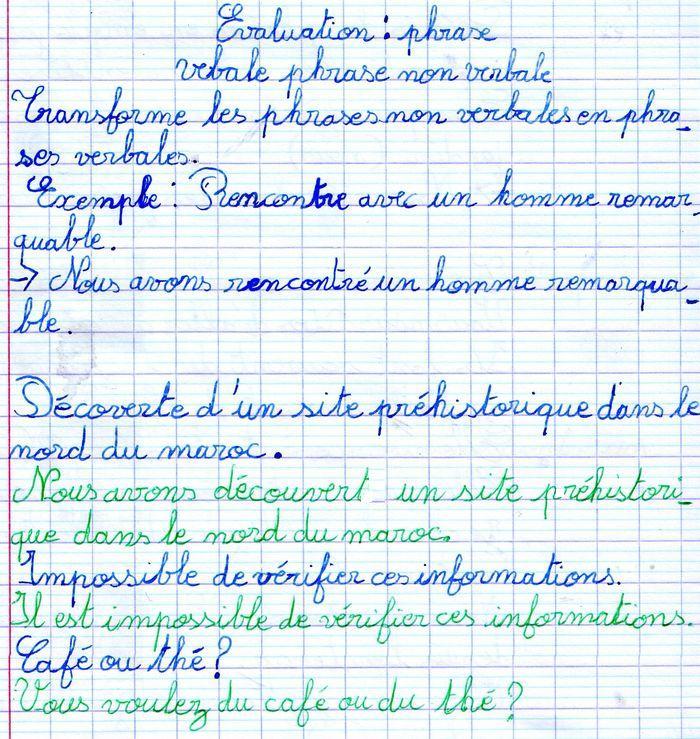 Evaluation : phrase
verbale phrase non verbale
Transforme les phrases non verbales en phra_
ses verbales.
Exemple : Rencontre avec un homme remar_
quable.
→ Nous avons rencontré un homme remarqua_
ble.
Décoverte d'un site préhistorique dans le
nord du maroc.
Nous avons découvert un site préhistori_
que dans le nord du maroc.
Impossible de vérifier ces informations.
Il est impossible de vérifier ces informations.
Café ou thé ?
Vous voulez du café ou du thé ?